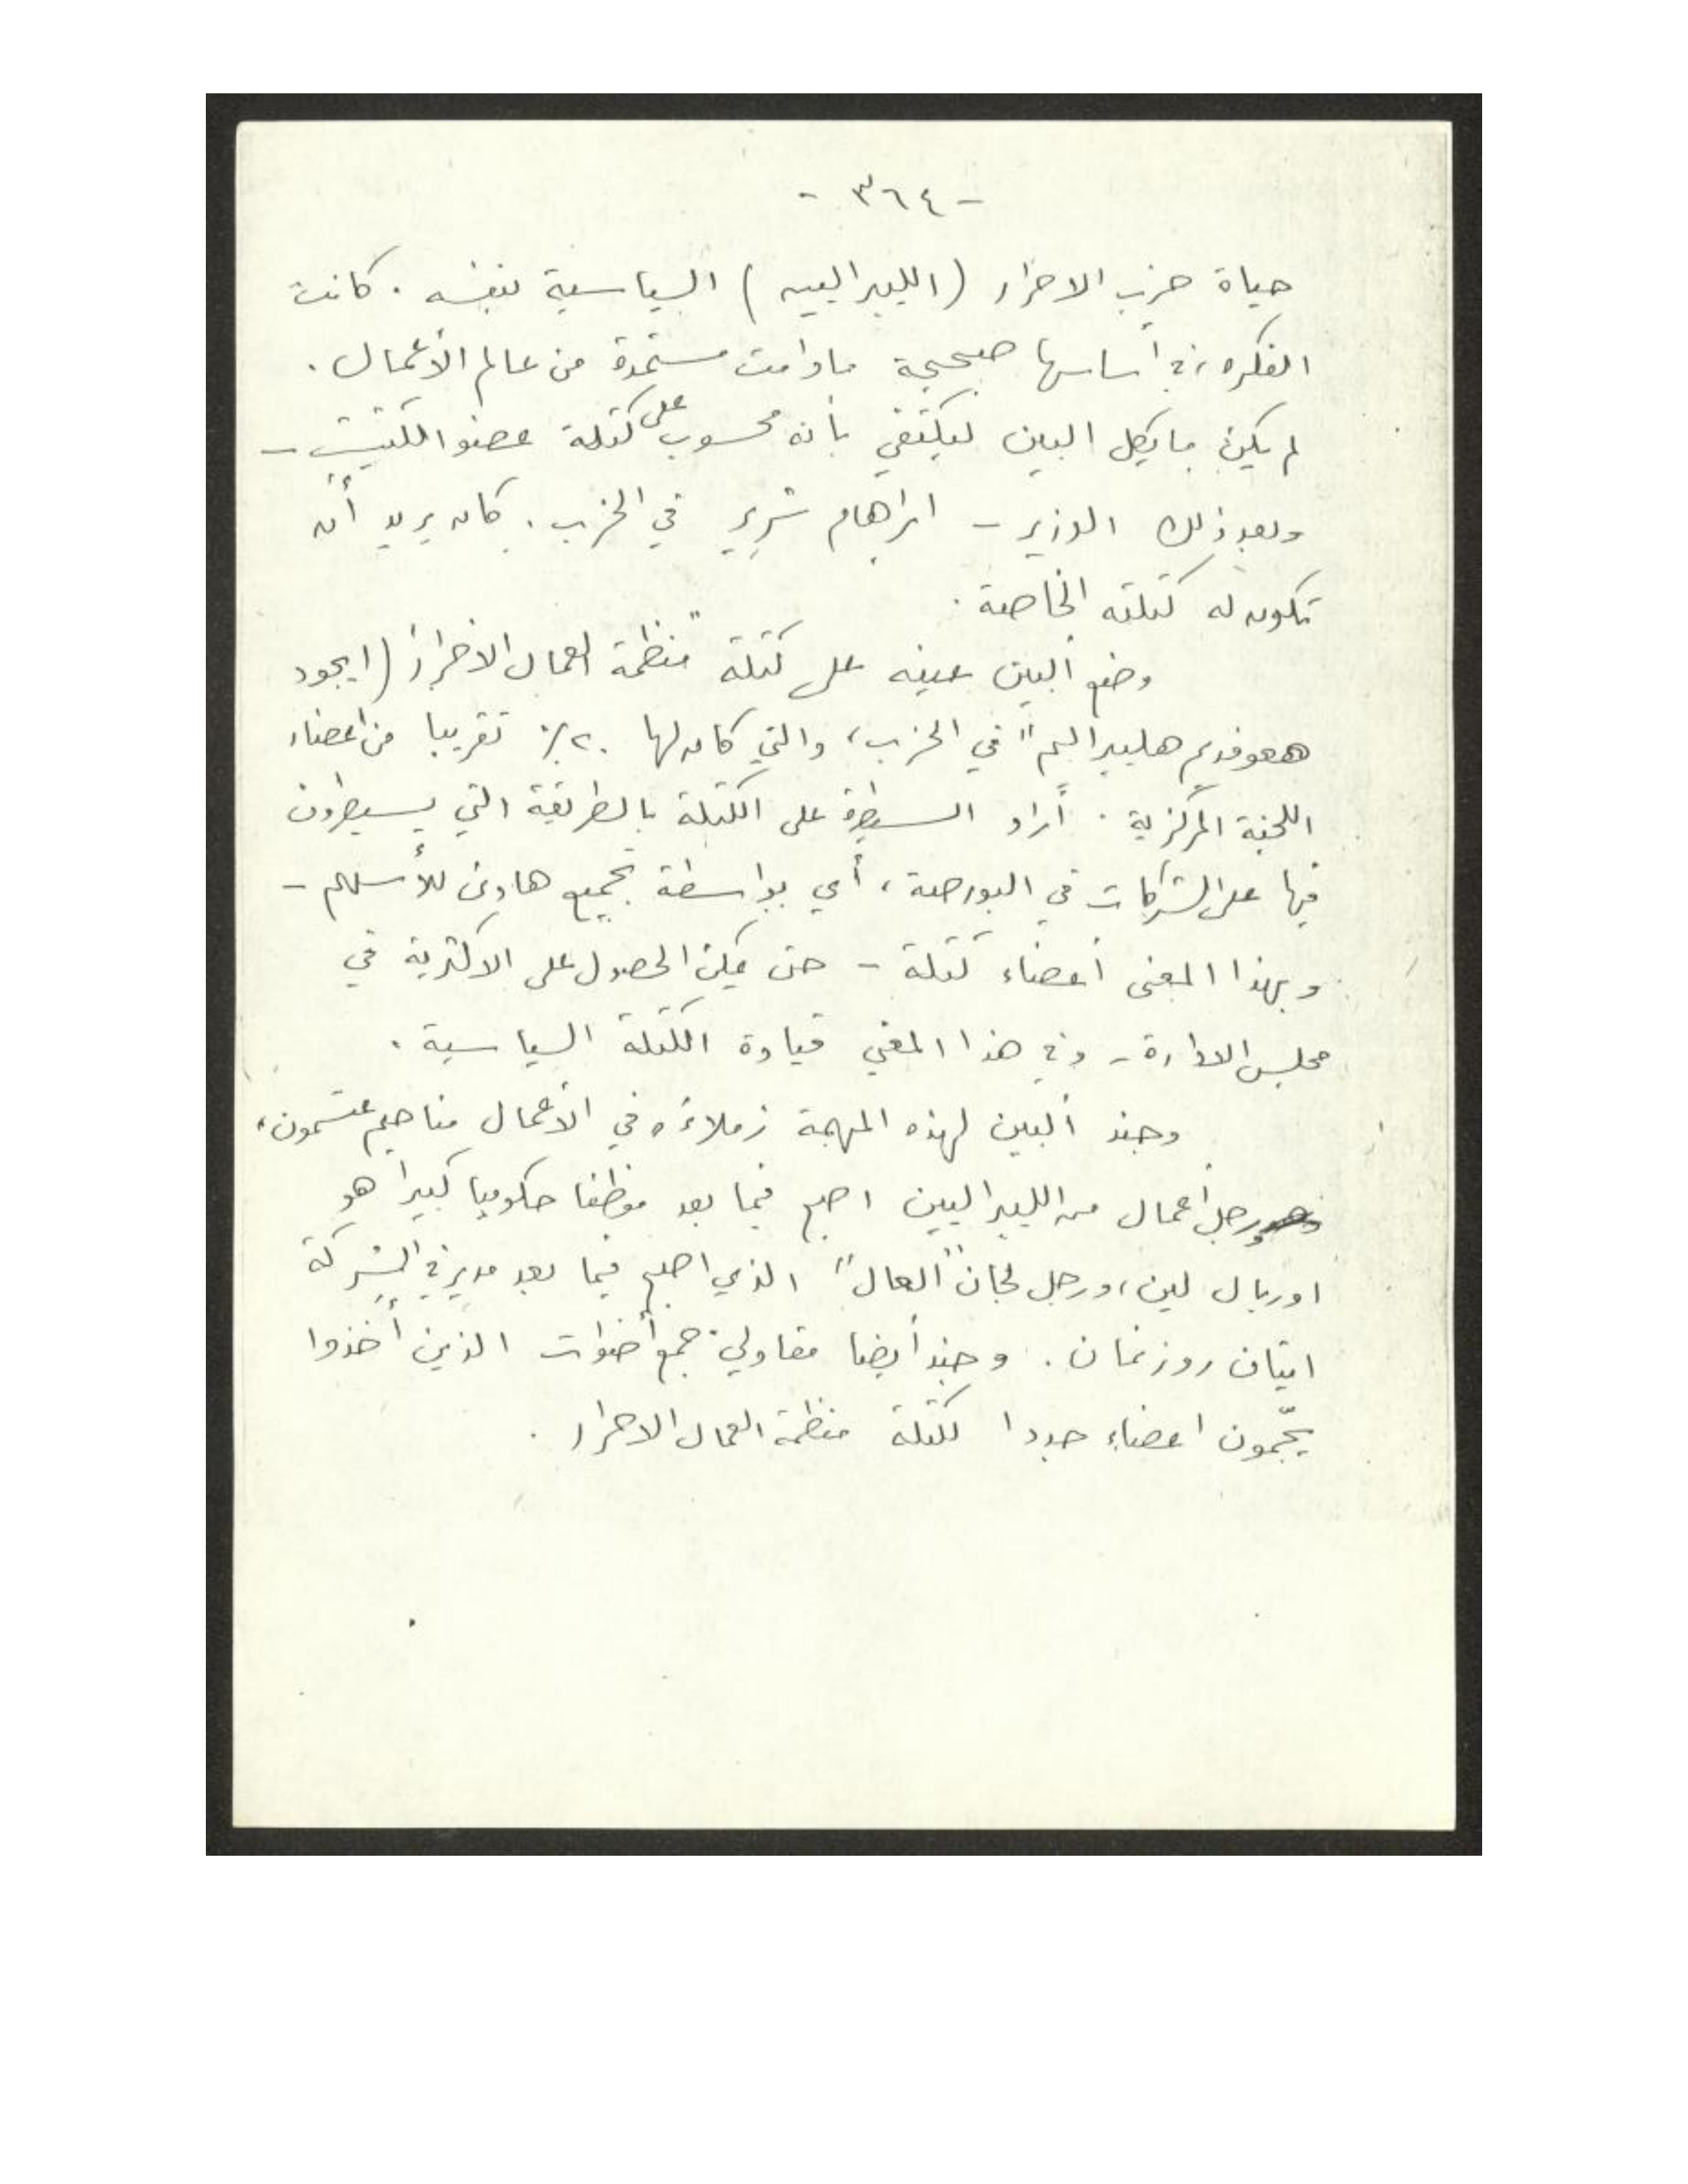 - ٣٦٤ -
حياة حزب الاحرار (الليبراليين) السياسية نفسه . كانت
الفكرة في أساسها صحيحة مادامت مستمدة من عالم الأعمال .
لم يكن مايكل البين ليكتفي بأنه محسوب على كتلة عضو الكنيست -
وبعد ذلك الوزير - ابراهام شرير في الحزب . كان يريد أن
تكون له كتلته الخاصة .
وضع ألبين عينه على كتلة "منظمة العمال الاحرار" (ايجود
هعوفديم هليبراليم" في الحزب، والتي كان لها ٢٠٪ تقريبا من اعضاء
اللجنة المركزية . أراد السيطرة على الكتلة بالطريقة التي يسيطرون
فيها على الشركات في البورصة ، أي بواسطة تجميع هادئ للأسهم -
وبهذا المعنى أعضاء كتلة - حتى يمكن الحصول على الاكثرية في
مجلس الادارة - وفي هذا المعنى قيادة الكتلة السياسية .
وجند ألبين لهذه المهمة زملاءه في الأعمال مناحيم عتسمون،
ورجل أعمال من الليبراليين اصبح فيما بعد موظفا حكوميا كبيرا هو
اوريال لين، ورجل لجان "العال" الذي اصبح فيما بعد مدير في الشركة
ايتان روزنمان . وجند أيضا مقاولي جمع أصوات الذين أخذوا
يجمعون اعضاء جددا لكتلة منظمة العمال الاحرار .